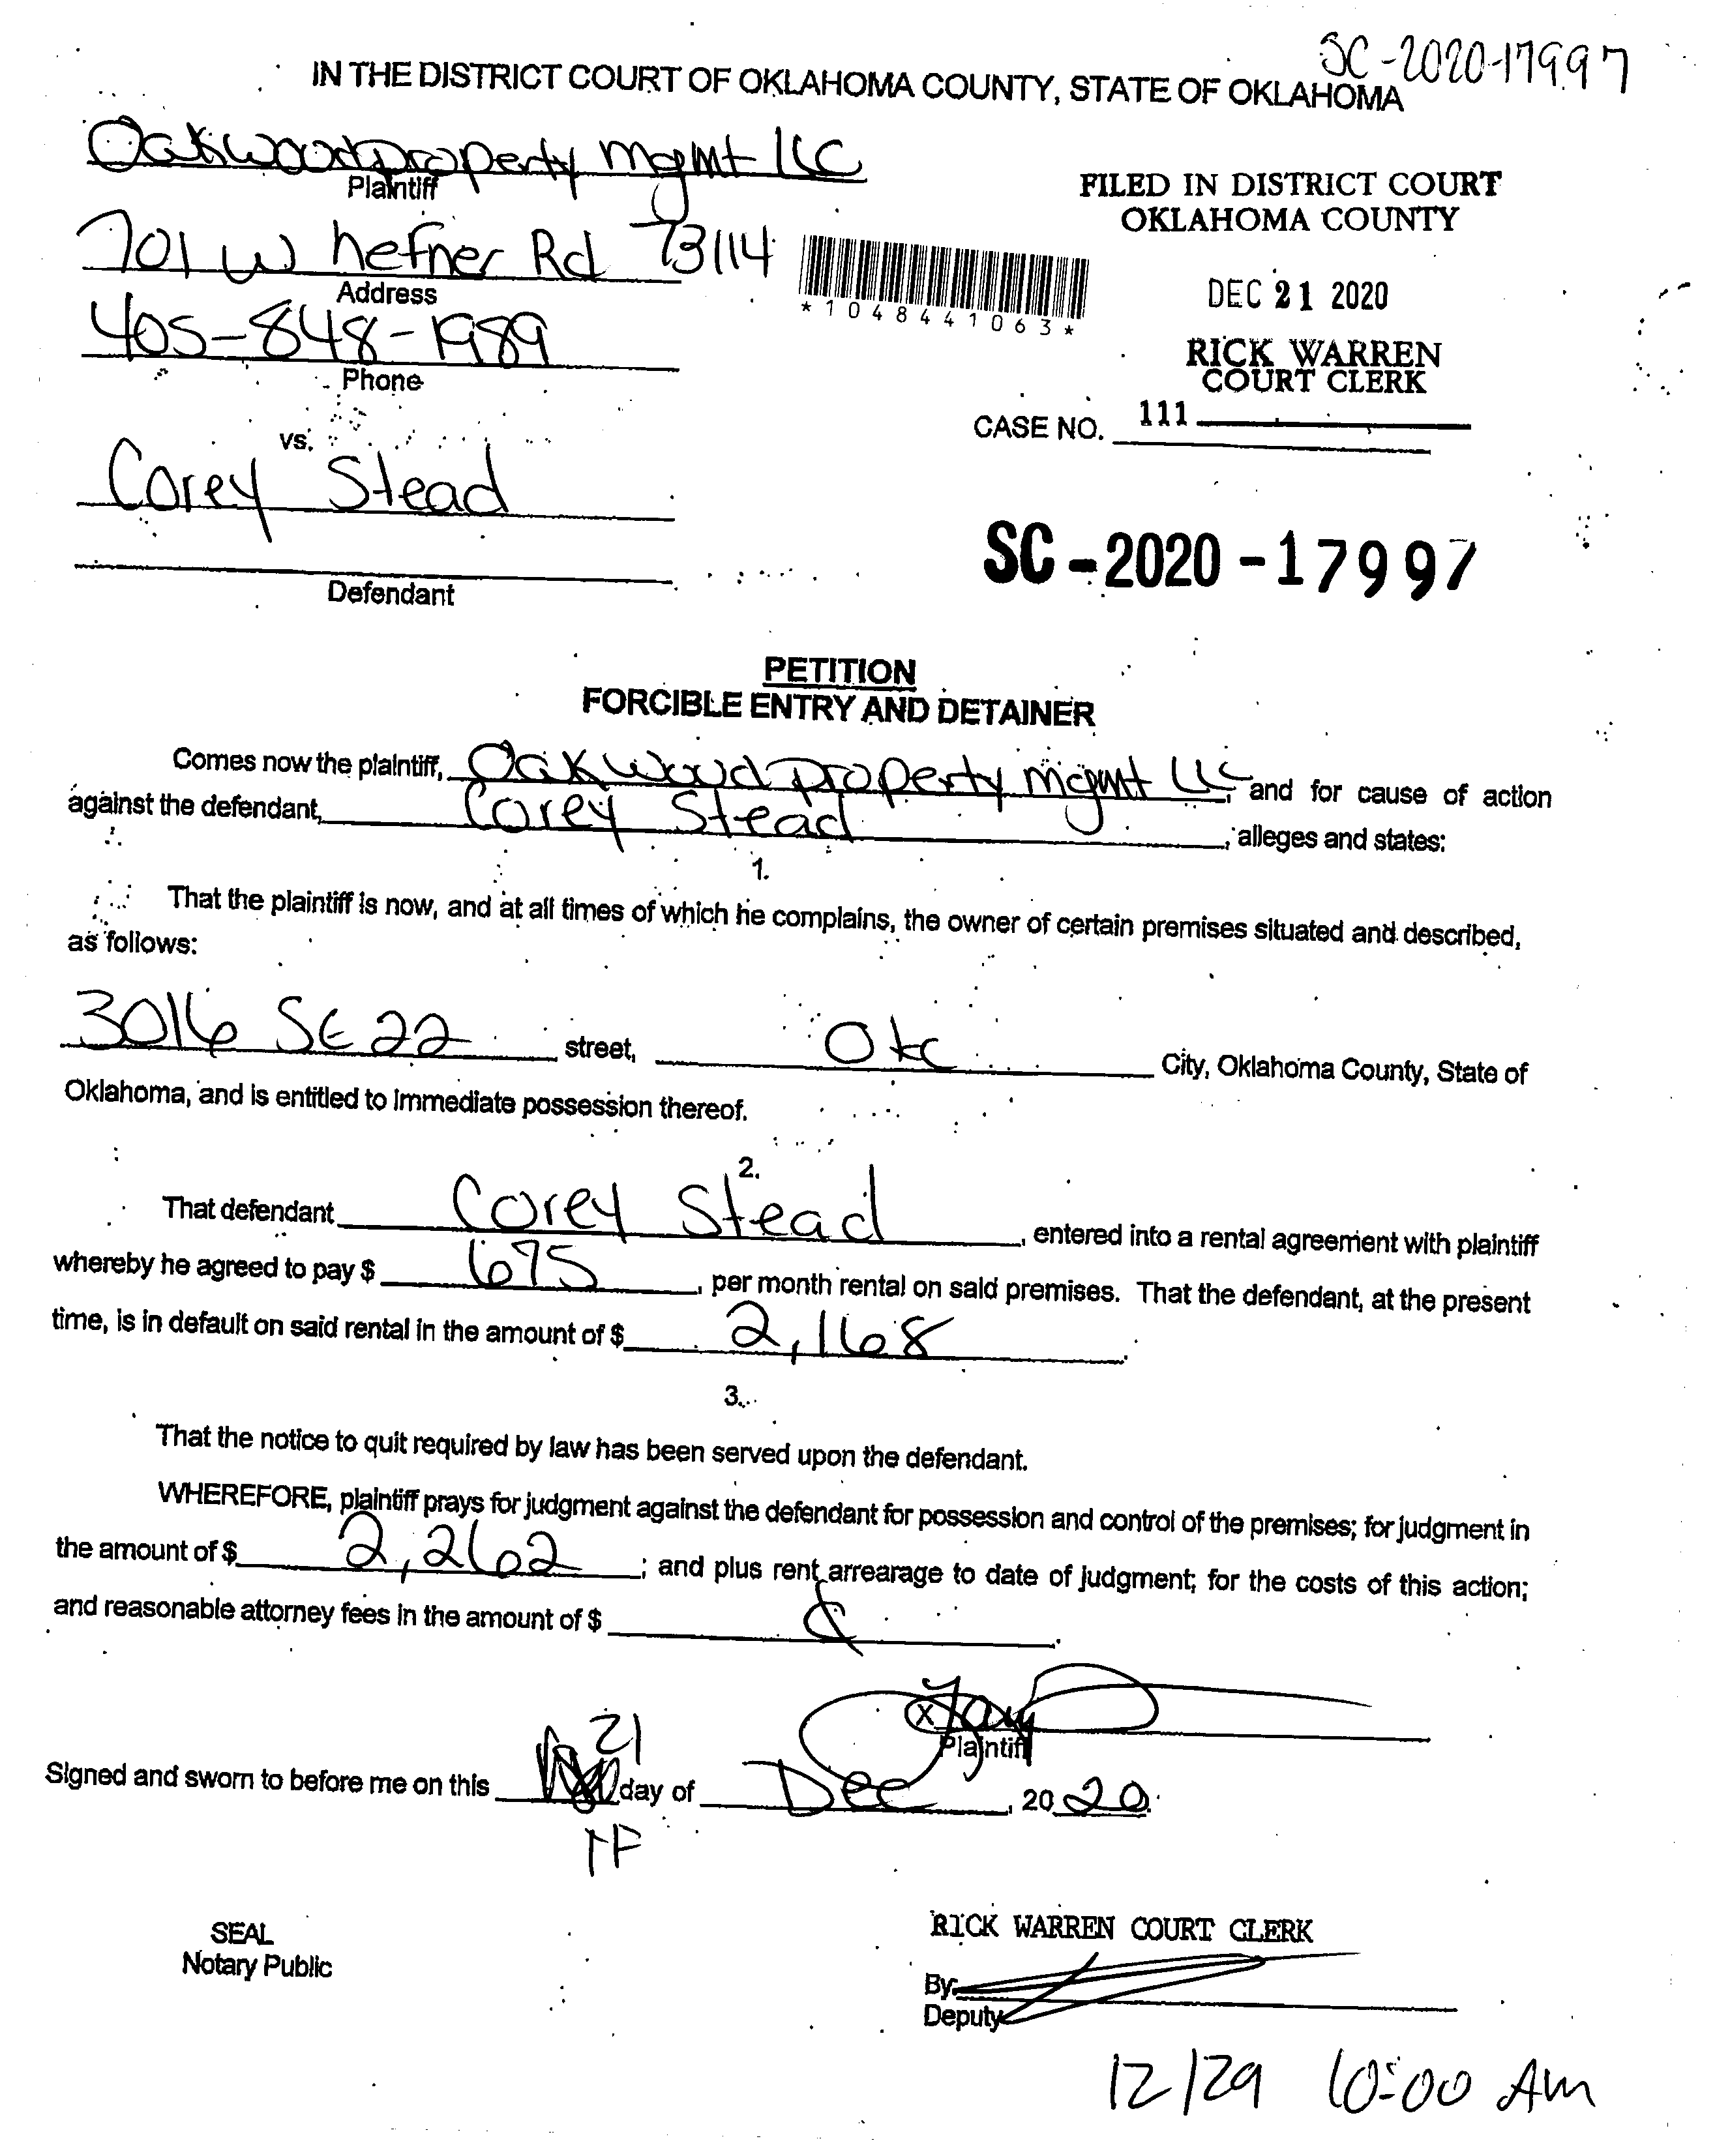 SC-2020-17997
IN THE DISTRICT COURT OF OKLAHOMA COUNTY, STATE OF OKLAHOMA
Oakwood property mgmt LLC
Plaintiff
FILED IN DISTRICT COURT
OKLAHOMA COUNTY
701 W hefner Rd 73114
Address
*1048441063*
DEC 21 2020
405-848-1989
Phone
RICK WARREN
COURT CLERK
CASE NO. 111
vs.
Corey Stead
SC-2020-17997
Defendant
PETITION
FORCIBLE ENTRY AND DETAINER
Comes now the plaintiff, Oakwood property mgmt LLC, and for cause of action
against the defendant, Corey Stead, alleges and states:
1.
That the plaintiff is now, and at all times of which he complains, the owner of certain premises situated and described,
as follows:
3016 SE 22 street, Okc City, Oklahoma County, State of
Oklahoma, and is entitled to immediate possession thereof.
2.
That defendant Corey Stead, entered into a rental agreement with plaintiff
whereby he agreed to pay $ 675, per month rental on said premises. That the defendant, at the present
time, is in default on said rental in the amount of $ 2,168.
3.
That the notice to quit required by law has been served upon the defendant.
WHEREFORE, plaintiff prays for judgment against the defendant for possession and control of the premises; for judgment in
the amount of $ 2,262; and plus rent arrearage to date of judgment; for the costs of this action;
and reasonable attorney fees in the amount of $
X
Plaintiff
21
Signed and sworn to before me on this day of Dec, 2020.
SEAL
Notary Public
RICK WARREN COURT CLERK
By
Deputy
12/29 10:00 AM